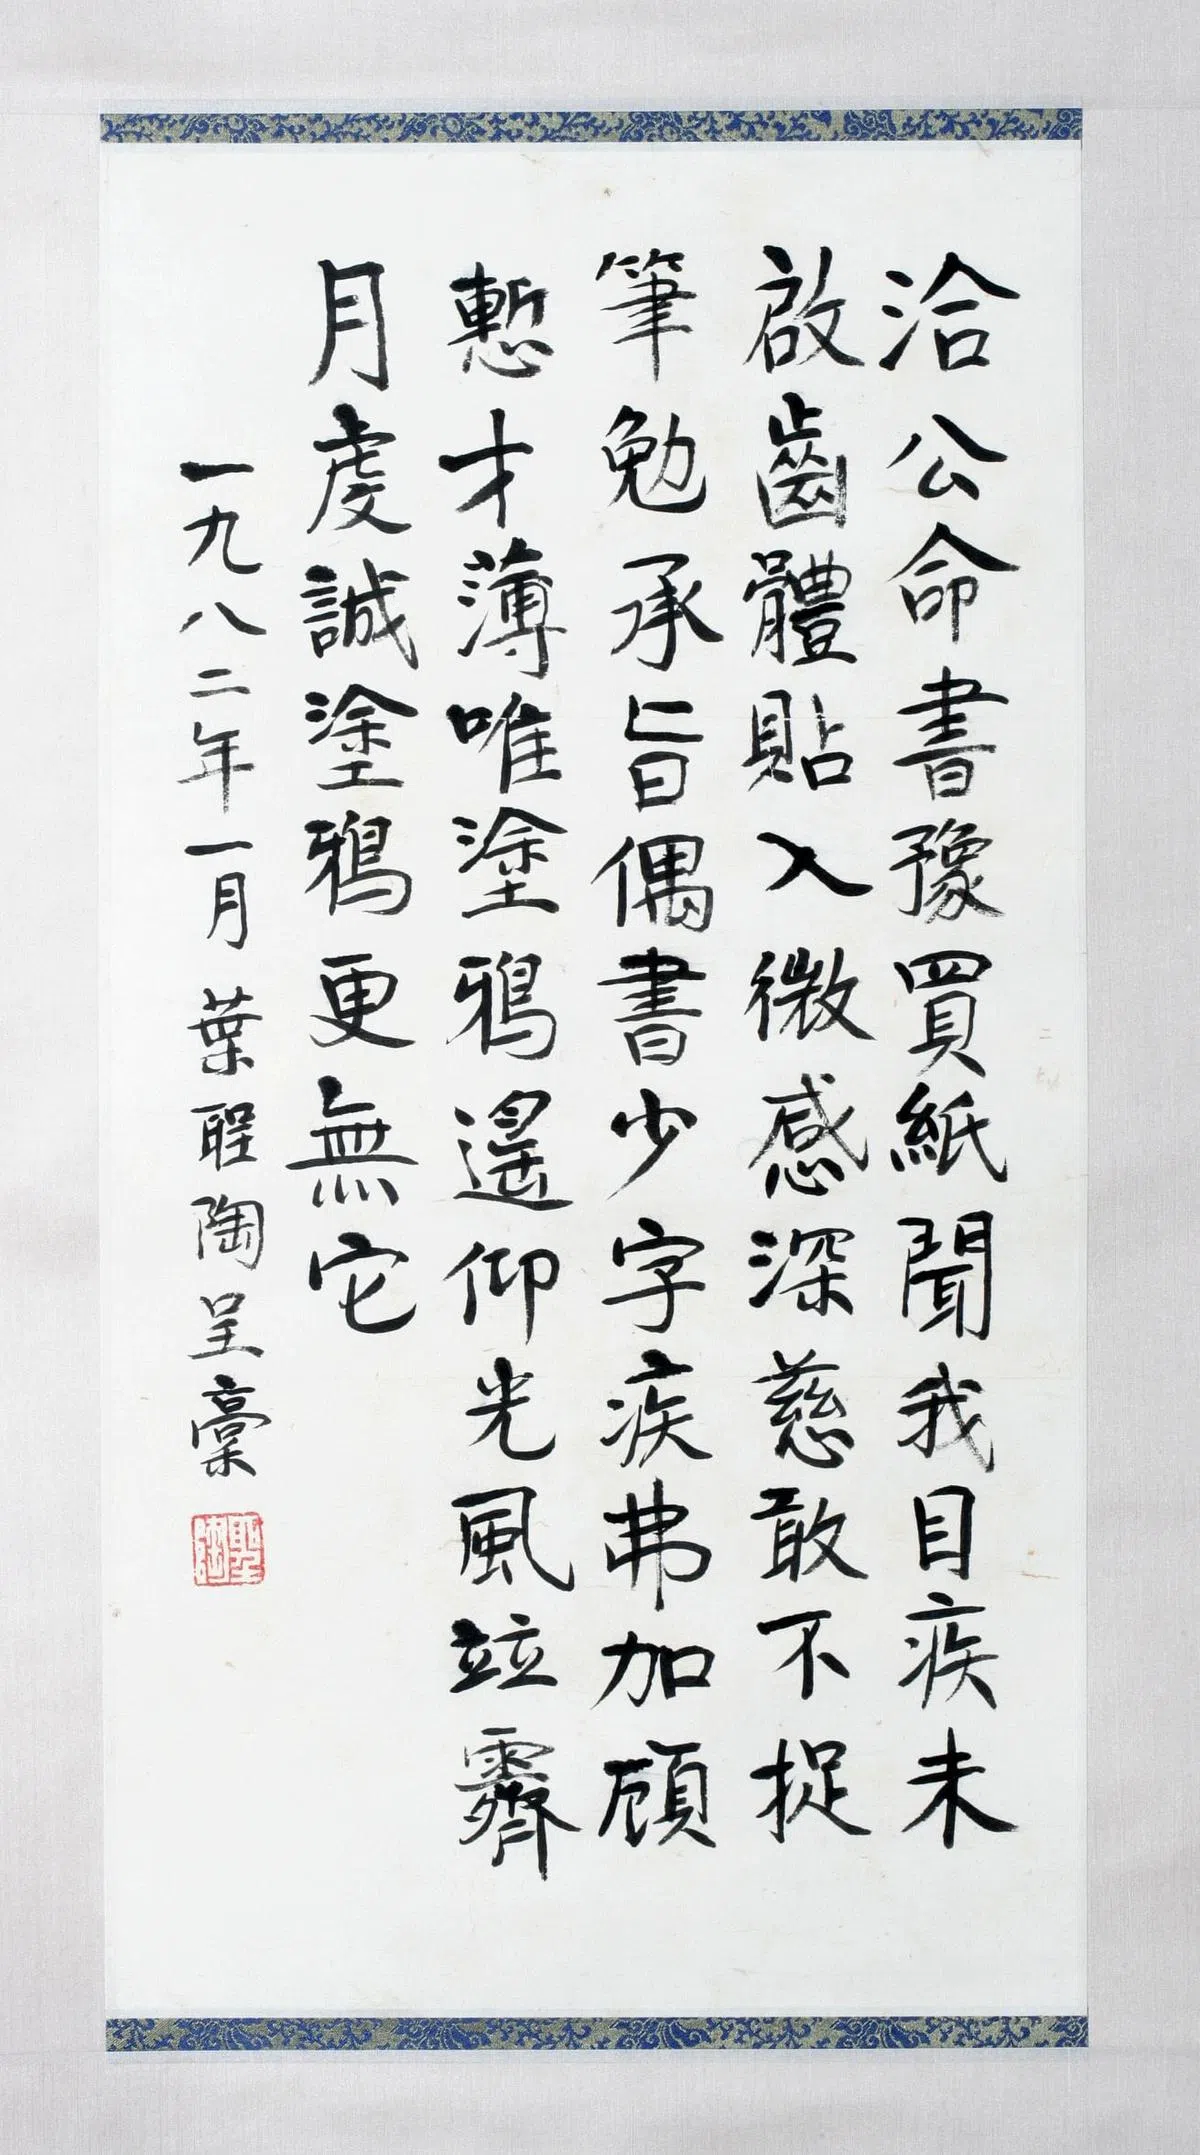 洽公命書豫買紙聞我目疾未
啟齒體貼入微感深慈敢不捉
筆勉承旨偶書少字疾弗加顧
慙才薄唯塗鴉遥仰光風竝霽
月虔誠塗鴉更無它
一九八二年一月葉聖陶呈稾
聖陶